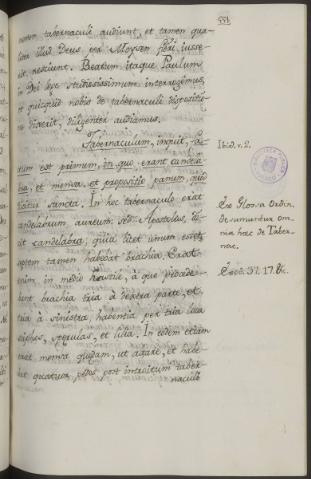 551.
mentem tabernaculi audiunt, et tamen qua-
liter illud Deus per Moysen fieri iusse-
rit, nesciunt. Beatum itaque Paulum
Dei hyc studiosissimum interrogemus,
et quicquid nobis de tabernaculi dispositio-
dixerit, diligenter audiamus.
Tabernaculum, inquit, fac-
tum est primum, in quo erant candela-
bra, et mensa, et propositio panum, quae
dicitur sancta. In hoc tabernaculo erat
candelabrum aureum, sed Apostolus,
candelabra, quia licet unum esset,
septem tamen habebat brachia. Erat
enim in medio hastile, a quo procede-
bant brachia tria a dextra parte, et
tria a sinistra, habentia per tria loca
sciphos, sperulas, et lilia. In eodem etiam
erat mensa quaedam, ut agare, et habe-
bat quatuor pedes post introitum taber-
naculi
Ibid. v. 2.
Ex Glossa Ordin.
desumuntur om-
nia haec de Taber-
nac.
Exod. 37. 17. &c.